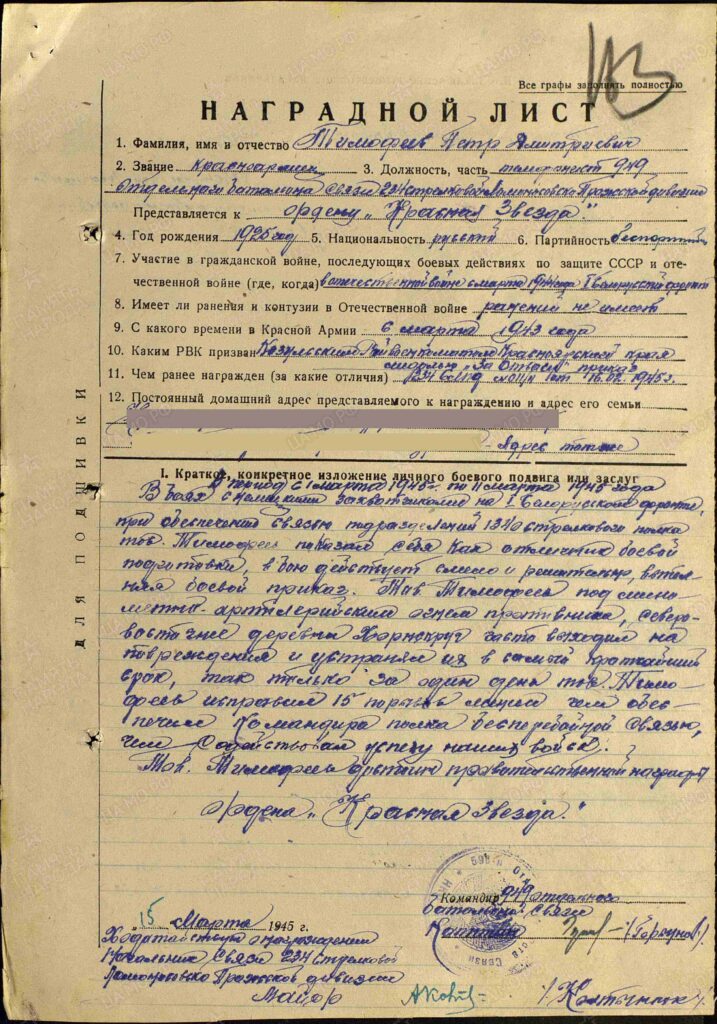 Все графы заполнять полностью
НАГРАДНОЙ ЛИСТ
1. Фамилия, имя и отчество Тимофеев Петр Дмитриевич
2. Звание красноармеец 3. Должность, часть телефонист 949
отдельного батальона связи 234 стрелковой Ломоносовско Пражской дивизии
Представляется к ордену „Красная Звезда"
4. Год рождения 1925 год 5. Национальность русский 6. Партийность беспартийн
7. Участие в гражданской войне, последующих боевых действиях по защите СССР и оте-
чественной войне (где, когда) в отечественной войне с марта 1944 года I Белорусский фронт
8. Имеет ли ранения и контузии в Отечественной войне ранений не имеет
9. С какого времени в Красной Армии 6 марта 1943 года
10. Каким РВК призван Козульским Райвоенкоматом Красноярского края
медалью „За Отвагу" приказ
11. Чем ранее награжден (за какие отличия) от 16.02.1945 г.
12. Постоянный домашний адрес представляемого к награждению и адрес его семьи
Адрес тот же
ДЛЯ ПОДШИВКИ
I. Краткое, конкретное изложение личного боевого подвига или заслуг
В период с 1 марта 1945 г. по 11 марта 1945 года
В боях с немецкими захватчиками на I Белорусском фронте,
при обеспечении связью подразделений 1340 стрелкового полка
тов. Тимофеев показал себя как отличник боевой
подготовки, в бою действует смело и решительно, выпол-
няя боевой приказ. Тов Тимофеев под мино-
метно-артиллерийским огнем противника, северо-
восточнее деревни часто выходил на
повреждения и устранял их в самый кратчайший
срок, так только за один день тов. Тимо-
феев исправил 15 порывов линии чем обес-
печил командира полка бесперебойной связью,
чем содействовал успеху наших войск.
Тов. Тимофеев достоин правительственной награды
ордена „Красная Звезда."
Командир 949 отдельного
батальона связи
Капитан /Горбунов/
„15" Марта 1945 г.
Ходатайствую о награждении
Начальник связи 234 Стрелковой
Ломоносовско Пражской дивизии
Майор